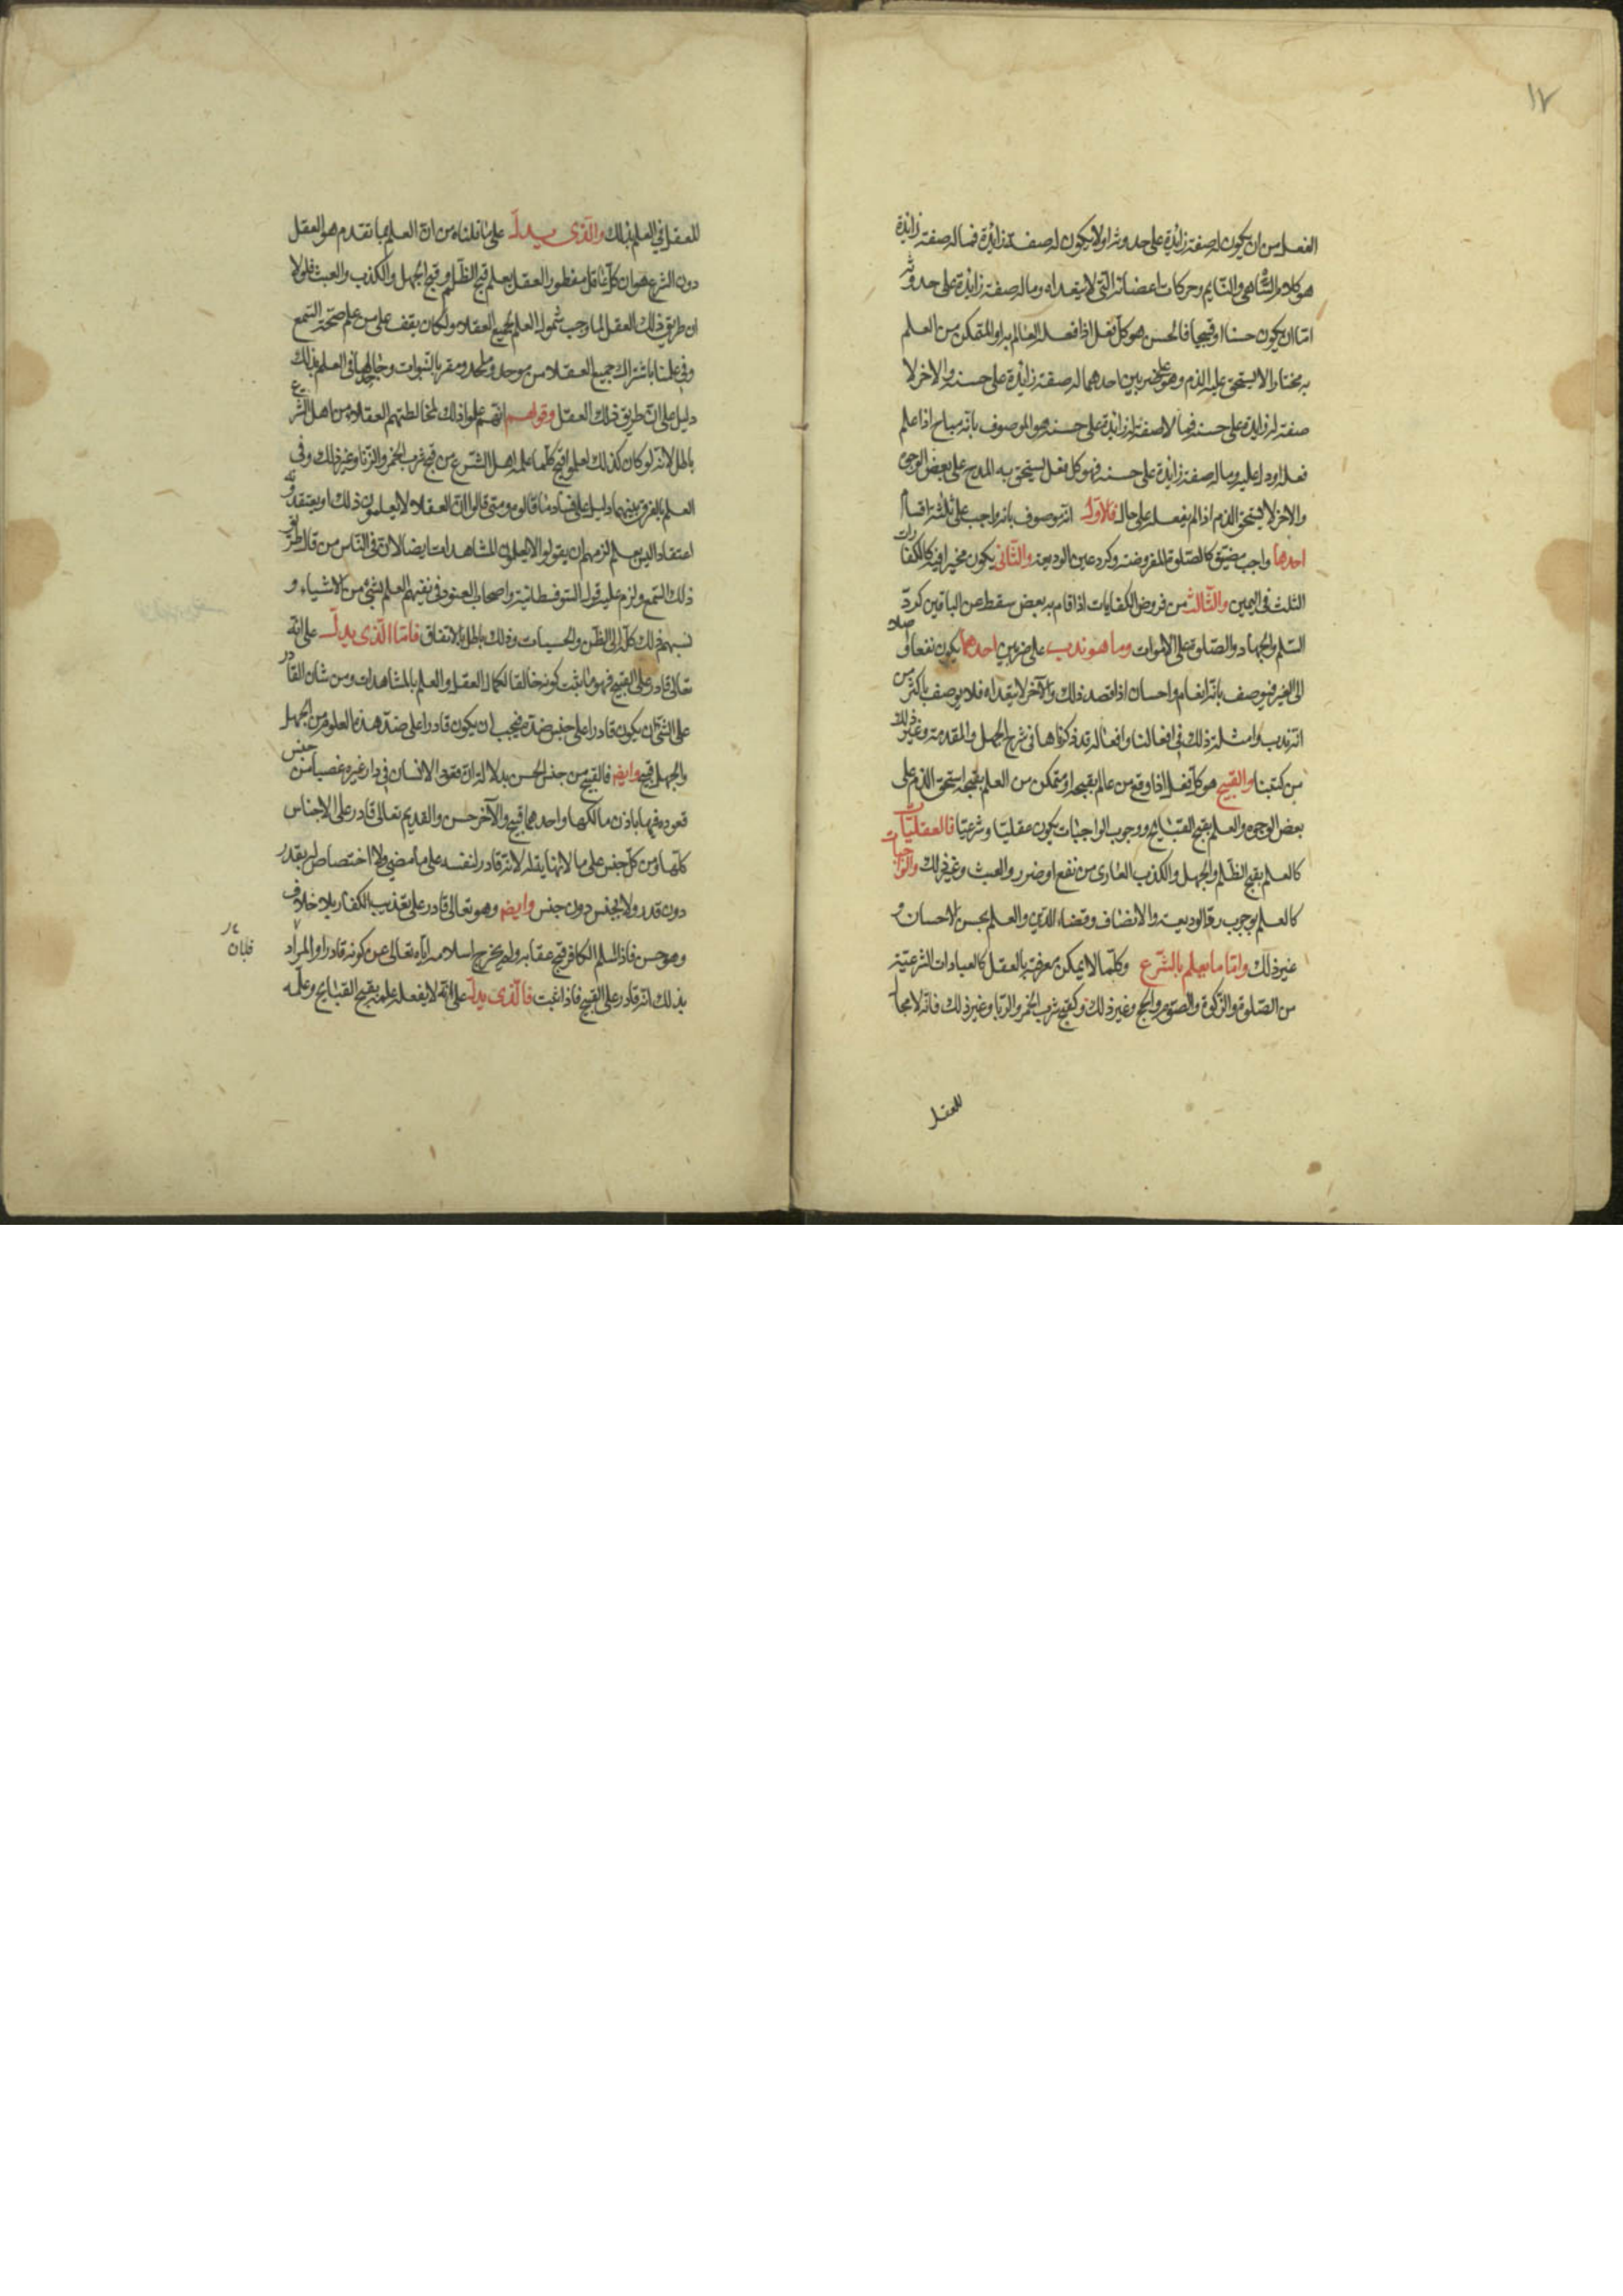 ١٧
الفعل من ان يكون له صفة زائدة على حدوثه او لا يكون له صفة زائدة فما له صفة زائدة
هو كلام الساهي والنايم وحركات اعضائه التى لا يتعداه وما له صفة زائدة على حدوثه
اما ان يكون حسنا او قبيحا فالحسن هو كل فعل اذا فعله العالم به او المتمكن من العلم
به مختارا لا يستحق عليه الذم وهو على ضربين احدهما له صفة زائدة على حسنه والاخر لا
صفة له زايدة على حسنه فما لا صفة له زائدة على حسنه هو الموصوف بانه مباح اذا علم
فعله او دل عليه وما له صفة زائدة على حسنه فهو كل فعل يستحق به المدح على بعض الوجوه
والاخر لا يستحق الذم اذا لم يفعله على حال فالاول انه موصوف بانه واجب على ثلثة اقسام
احدها واجب مضيق كالصلوة المفروضة وكرد عين الوديعة والثانى يكون مخيرا فيه كالكفارات
الثلث فى اليمين والثالث من فروض الكفايات اذا قام به بعض سقط عن الباقين كرد
السلم والجهاد والصلوة على الاموات وما هو ندب على ضربين احدهما يكون نفعا واصلا
الى الغير فيوصف بانه انعام واحسان اذا قصد ذلك والآخر لا يتعداه فلا يوصف باكثر من
انه ندب وامثلة ذلك فى افعالنا وافعاله قد ذكرناها فى شرح الجمل والمقدمة وغير ذلك
من كتبنا والقبيح هو كل فعل اذا وقع من عالم بقبحه او متمكن من العلم بقبحه استحق الذم على
بعض الوجوه والعلم بقبح القبايح ووجوب الواجبات يكون عقليا وشرعيا فالعقليات
كالعلم بقبح الظلم والجهل والكذب العارى من نفع او ضرر والعبث وغير ذلك والواجبات
كالعلم بوجوب رد الوديعة والانصاف وقضاء الدين والعلم بحسن الاحسان و
غير ذلك واما ما يعلم بالشرع وكلما لا يمكن معرفته بالعقل كالعبادات الشرعية
من الصلوة والزكوة والصوم والحج وغير ذلك وكقبح شرب الخمر والربا وغير ذلك فانه لا مجال
للعقل
للعقل فى العلم بذلك والذى يدل على ما قلناه من ان العلم بما تقدم هو العقل
دون الشرع هو ان كل عاقل مفطور العقل يعلم قبح الظلم وقبح الجهل والكذب والعبث فلولا
ان طريق ذلك العقل لما وجب شمول العلم لجميع العقلاء ولكان يقف على من علم صحة السمع
وفى علمنا باشتراك جميع العقلاء من موحد وملحد ومقر بالنبوات وجاحدها فى العلم بذلك
دليل على ان طريق ذلك العقل وقولهم انهم علموا ذلك لمخالطتهم العقلاء من اهل الشرع
باطل لانه لو كان كذلك لعلموا قبح كلما علمه اهل الشرع من قبح شرب الخمر والزنا وغير ذلك وفى
العلم بالفرق بينهما دليل على فساد ما قالوه ومتى قالوا ان العقلاء لا يعلمون ذلك او يعتقدونه
اعتقادا ليس بعلم لزمهم ان يقولوا لا يعلمون المشاهدات ايضا لان فى الناس من قال طريق
ذلك السمع ولزم عليه قول السوفسطائية واصحاب العنود فى نفيهم العلم بشئ من الاشياء و
نسبهم ذلك كله الى الظن والحسبان وذلك باطل بالاتفاق فاما الذى يدل على انه
تعالى قادر على القبيح فهو ما ثبت كونه خالقا لكمال العقل والعلم بالمشاهدات ومن شان القادر
على الشئ ان يكون قادرا على جنس ضده فيجب ان يكون قادرا على ضد هذه العلوم من الجهل
والجهل قبيح وايضا فالقبيح من جنس الحسن بدلالة ان قعود الانسان فى دار غيره غصبا من جنس
قعوده فيها باذن مالكها واحدهما قبيح والآخر حسن والقديم تعالى قادر على الاجناس
كلها ومن كل جنس على ما لا نهاية له لانه قادر لنفسه على ما مضى ولا اختصاص له بقدر
دون قدر ولا بجنس دون جنس وايضا وهو تعالى قادر على تعذيب الكفار بلا خلاف
وهو حسن فاذا اسلم الكافر قبح عقابه ولم يخرج اسلامه اياه تعالى عن كونه قادرا والمراد
بذلك انه قادر على القبيح فاذا ثبت فالذى يدل على انه لا يفعله علمه بقبح القبايح وعلمه